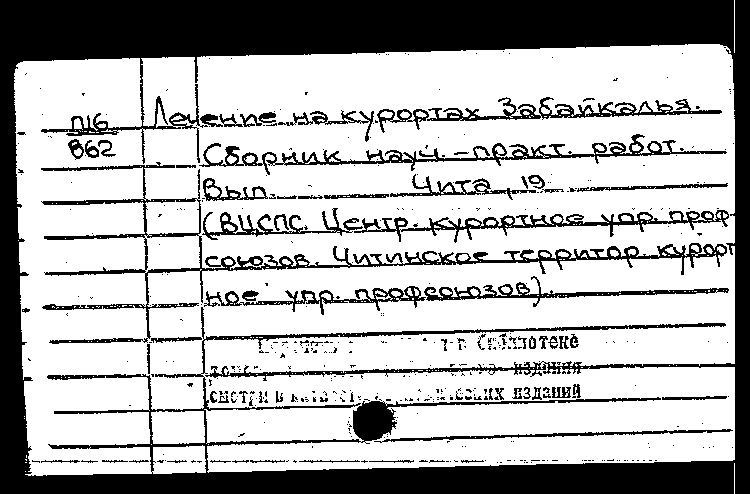 П16 Лечение на курортах Забайкалья.
В62 Сборник науч.-практ. работ.
Вып. Чита, 19
(ВЦСПС. Центр. курортное упр. проф-
союзов. Читинское территор. курорт
ное упр. профсоюзов).
в библиотеке
издания
смотри в изданий